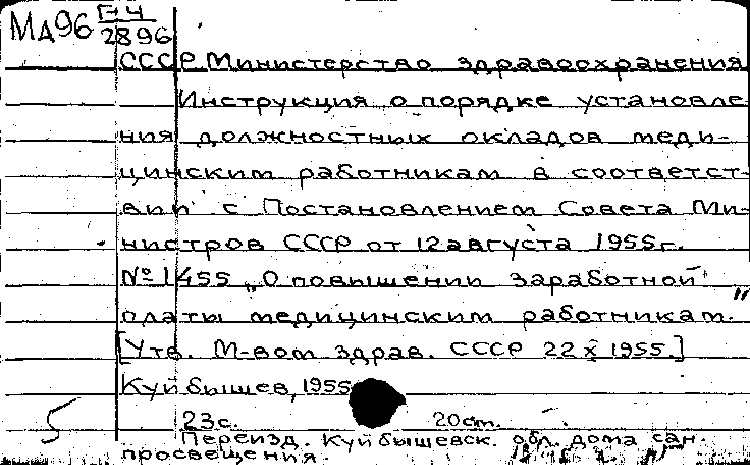 МД96 ЕЧ
2896
СССР Министерство здравоохранения
Инструкция о порядке установле-
ния должностных окладов меди-
цинским работникам в соответст-
вии с Постановлением Совета Ми-
нистров СССР от 12 августа 1955г.
№ 1455 „О повышении заработной
платы медицинским работникам."
[Утв. М-вом здрав. СССР 22 X 1955.]
Куйбышев, 1955
5 23с. 20cm.
Переизд. Куйбышевск. обл. дома сан.
просвещения.